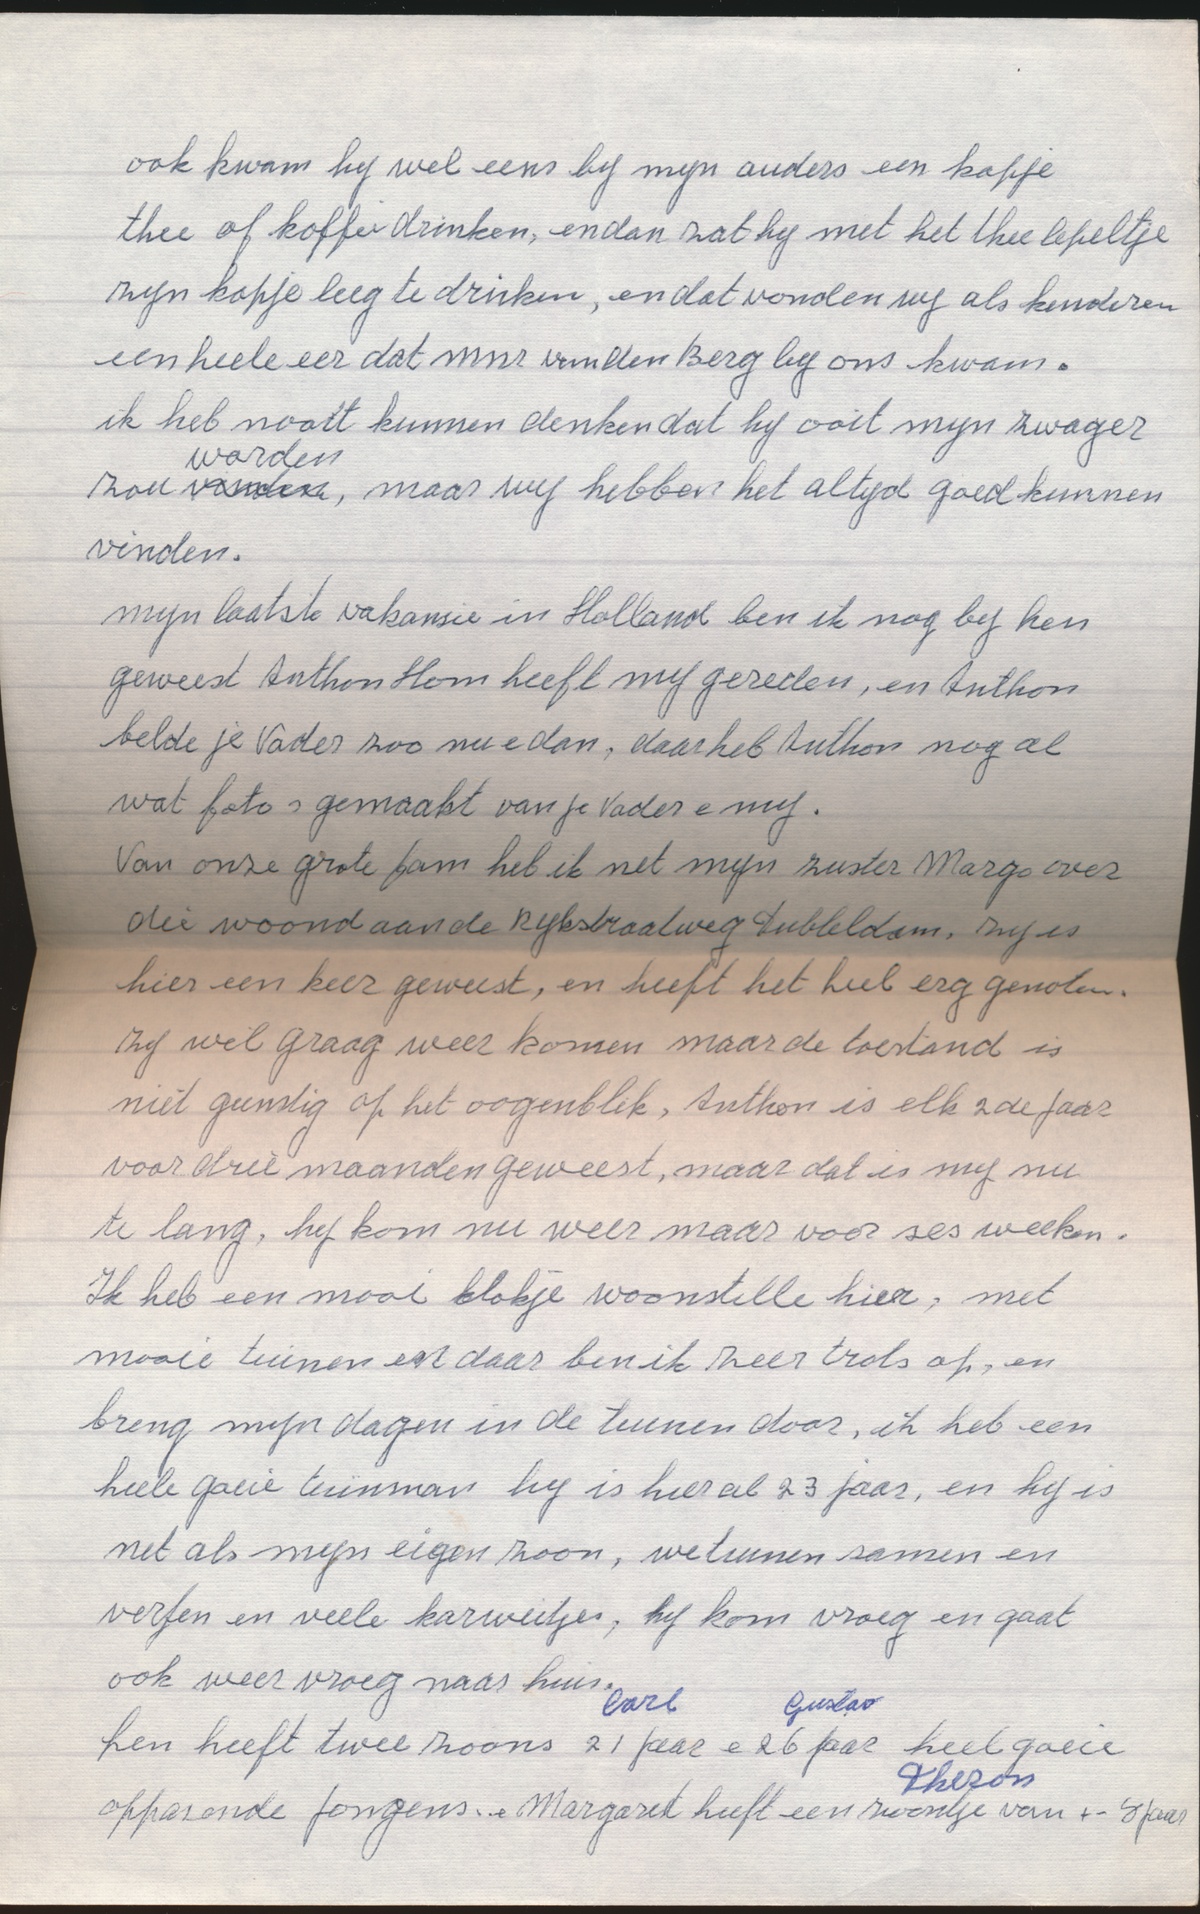 ook kwam hy wel eens by myn ouders een kopje
thee of koffie drinken, en dan zat hy met het thee lepeltje
zyn kopje leeg te drinken, en dat vonden wy als kenderen
een heele eer dat mnr van den Berg by ons kwam.
ik heb nooit kunnen denken dat hy ooit myn zwager
worden
zou vinden, maar wy hebben het altyd goed kunnen
vinden.
myn laatste vakansie in Holland ben ik nog by hen
geweest Anthon Hom heeft my gereden, en Anthon
belde je Vader zoo nu e dan, daar heb Anthon nog al
wat foto s gemaakt van je Vader e my.
Van onze grote fam heb ik net myn zuster Margo over
die woond aan de Rykstraatweg Dubbeldam. zy is
hier een keer geweest, en heeft het heel erg genoten.
zy wil graag weer komen maar de toestand is
niet gunstig op het oogenblik, Anthon is elk 2de jaar
voor drie maanden geweest, maar dat is my nu
te lang, hy kom nu weer maar voor ses weeken.
Ik heb een mooi blokje woonstelle hier, met
mooie tuinen en daar ben ik zeer trots op, en
breng myn dagen in de tuinen door, ik heb een
heele goeie tuinman hy is hier al 23 jaar, en hy is
net als myn eigen zoon, we tuinen samen en
verfen en veele karweitjes, hy kom vroeg en gaat
ook weer vroeg naar huis.
Carl Gustav
hen heeft twee zoons 21 jaar e 26 jaar heel goeie
Theron
oppasende jongens. e Margaret heeft een zoontje van +- 8 jaar